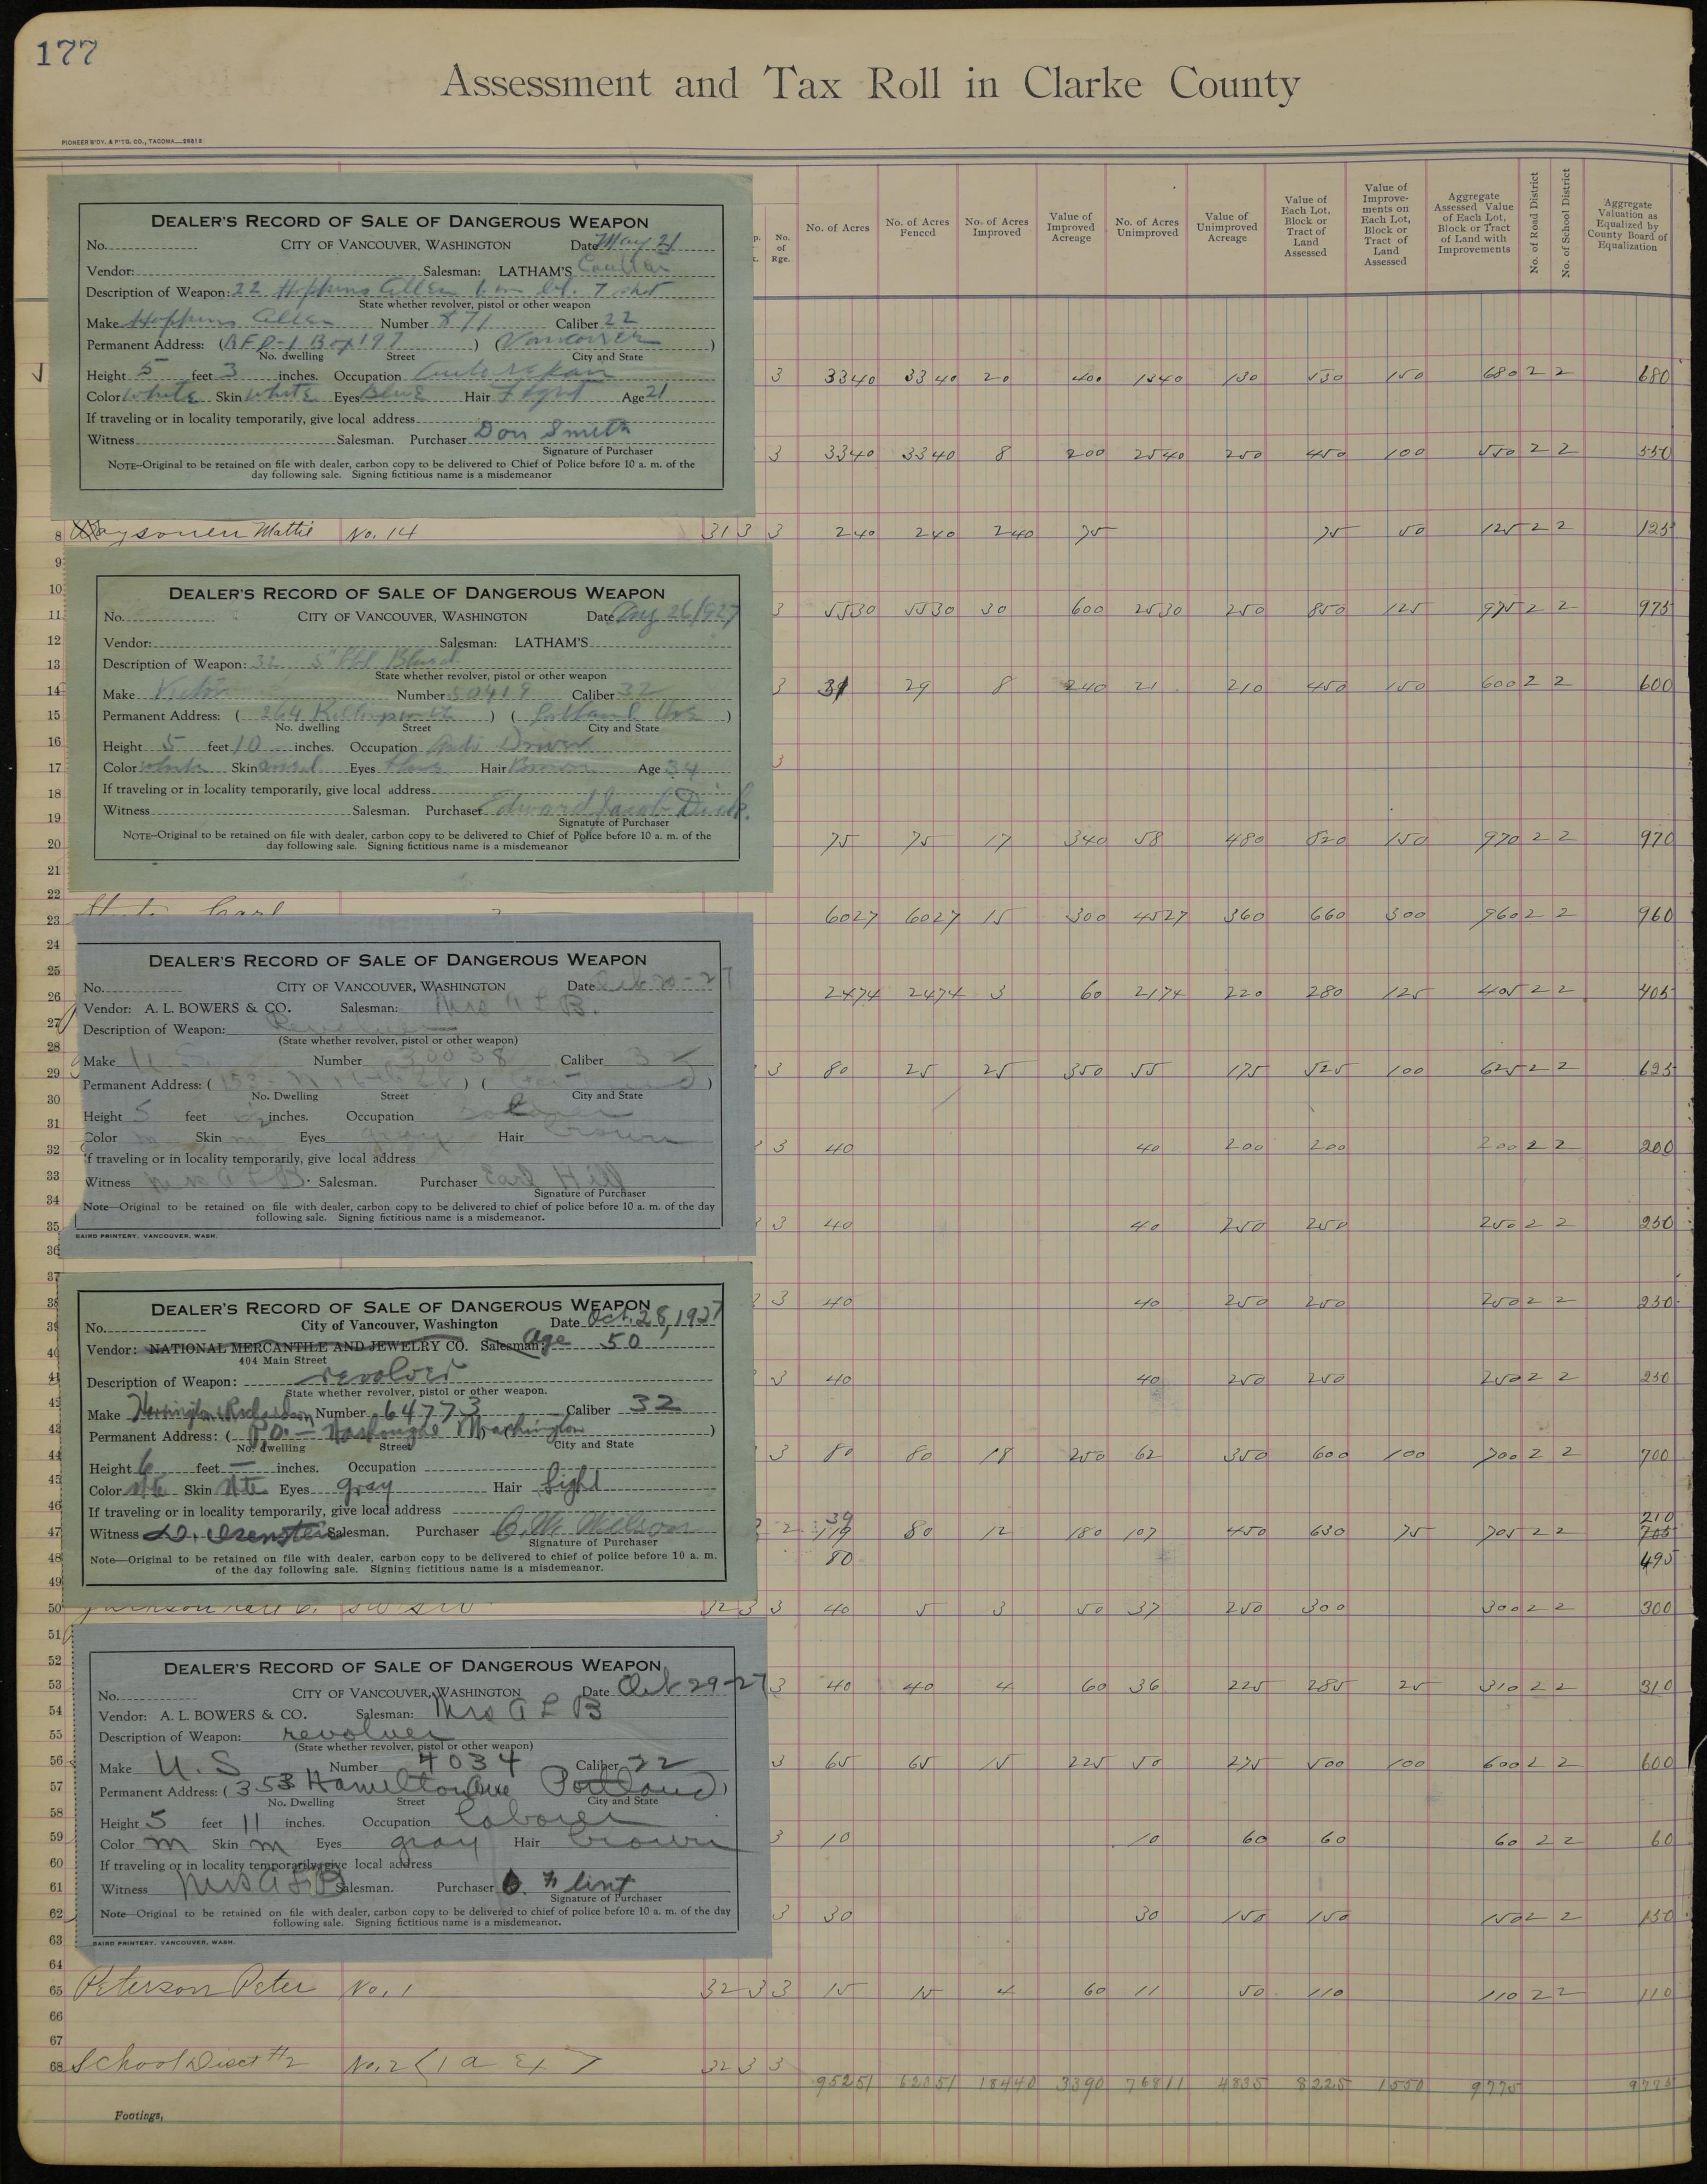 177
Assessment and Tax Roll in Clarke County
PIONEER B'DY. & P'TG. CO., TACOMA—26818
No. of Rge.
No. of Acres
No. of Acres Fenced
No. of Acres Improved
Value of Improved Acreage
No. of Acres Unimproved
Value of Unimproved Acreage
Value of Each Lot, Block or Tract of Land Assessed
Value of Improvements on Each Lot, Block or Tract of Land Assessed
Aggregate Assessed Value of Each Lot, Block or Tract of Land with Improvements
No. of Road District
No. of School District
Aggregate Valuation as Equalized by County Board of Equalization
DEALER'S RECORD OF SALE OF DANGEROUS WEAPON
No. CITY OF VANCOUVER, WASHINGTON Date May 21
Vendor: Salesman: LATHAM'S
Description of Weapon: 22 Hopkins Allen 7 shot
State whether revolver, pistol or other weapon
Make Hopkins Allen Number 871 Caliber 22
Permanent Address: (RFD-1 Box 197) (Vancouver)
No. dwelling Street City and State
Height 5 feet 3 inches. Occupation Auto repair
Color White Skin White Eyes Blue Hair Light Age 21
If traveling or in locality temporarily, give local address
Witness Salesman. Purchaser Don Smith
Signature of Purchaser
NOTE—Original to be retained on file with dealer, carbon copy to be delivered to Chief of Police before 10 a. m. of the
day following sale. Signing fictitious name is a misdemeanor
3 3340 3340 20 400 1340 130 530 150 680 2 2 680
3 3340 3340 8 200 2540 250 450 100 550 2 2 550
8 Mattie No. 14 31 3 3 240 240 240 75 75 50 125 2 2 125
DEALER'S RECORD OF SALE OF DANGEROUS WEAPON
No. CITY OF VANCOUVER, WASHINGTON Date Aug 26/927
Vendor: Salesman: LATHAM'S
Description of Weapon: 32 5" Bbl Blued
State whether revolver, pistol or other weapon
Make Victor Number 50419 Caliber 32
Permanent Address: (264 Killingsworth) (Portland Ore)
No. dwelling Street City and State
Height 5 feet 10 inches. Occupation Auto Driver
Color white Skin Eyes Blue Hair Brown Age 34
If traveling or in locality temporarily, give local address
Witness Salesman. Purchaser Edward Jacob
Signature of Purchaser
NOTE—Original to be retained on file with dealer, carbon copy to be delivered to Chief of Police before 10 a. m. of the
day following sale. Signing fictitious name is a misdemeanor
3 5530 5530 30 600 2530 250 850 125 975 2 2 975
3 31 29 8 240 21 210 450 150 600 2 2 600
3
75 75 17 340 58 480 820 150 970 2 2 970
6027 6027 15 300 4527 360 660 300 960 2 2 960
DEALER'S RECORD OF SALE OF DANGEROUS WEAPON
No. CITY OF VANCOUVER, WASHINGTON Date Oct 20-27
Vendor: A. L. BOWERS & CO. Salesman: Mrs A L B.
Description of Weapon: Revolver
(State whether revolver, pistol or other weapon)
Make U.S. Number 30038 Caliber 32
Permanent Address: (
No. Dwelling Street City and State
Height 5 feet inches. Occupation
Color m Skin m Eyes gray Hair brown
If traveling or in locality temporarily, give local address
Witness Mrs A L B. Salesman. Purchaser Earl Hill
Signature of Purchaser
Note—Original to be retained on file with dealer, carbon copy to be delivered to chief of police before 10 a. m. of the day
following sale. Signing fictitious name is a misdemeanor.
BAIRD PRINTERY, VANCOUVER, WASH.
2474 2474 3 60 2174 220 280 125 405 2 2 405
3 80 25 25 350 55 175 525 100 625 2 2 625
3 40 40 200 200 200 2 2 200
3 40 40 250 250 250 2 2 250
DEALER'S RECORD OF SALE OF DANGEROUS WEAPON
No. City of Vancouver, Washington Date Oct. 28, 1927
Vendor: NATIONAL MERCANTILE AND JEWELRY CO. Salesman: Age 50
404 Main Street
Description of Weapon: revolver
State whether revolver, pistol or other weapon.
Make Harrington & Richardson Number 64773 Caliber 32
Permanent Address: (P.O. — Washougal Washington)
No. dwelling Street City and State
Height 6 feet — inches. Occupation
Color Wte Skin Wte Eyes gray Hair light
If traveling or in locality temporarily, give local address
Witness D. Isenstein Salesman. Purchaser C. M. Wilson
Signature of Purchaser
Note—Original to be retained on file with dealer, carbon copy to be delivered to chief of police before 10 a. m.
of the day following sale. Signing fictitious name is a misdemeanor.
3 40 40 250 250 250 2 2 250
3 40 40 250 250 250 2 2 250
3 80 80 18 250 62 350 600 100 700 2 2 700
39 210
2 119 80 12 180 107 450 630 75 705 2 2 705
80 495
50 32 3 3 40 5 3 50 37 250 300 300 2 2 300
DEALER'S RECORD OF SALE OF DANGEROUS WEAPON
No. CITY OF VANCOUVER, WASHINGTON Date Oct 29-27
Vendor: A. L. BOWERS & CO. Salesman: Mrs A L B
Description of Weapon: revolver
(State whether revolver, pistol or other weapon)
Make U.S Number 4034 Caliber 22
Permanent Address: (353 Hamilton Ave Portland)
No. Dwelling Street City and State
Height 5 feet 11 inches. Occupation Laborer
Color m Skin m Eyes gray Hair brown
If traveling or in locality temporarily, give local address
Witness Mrs A L B Salesman. Purchaser O. Flint
Signature of Purchaser
Note—Original to be retained on file with dealer, carbon copy to be delivered to chief of police before 10 a. m. of the day
following sale. Signing fictitious name is a misdemeanor.
BAIRD PRINTERY, VANCOUVER, WASH.
3 40 40 4 60 36 225 285 25 310 2 2 310
3 65 65 15 225 50 275 500 100 600 2 2 600
3 10 10 60 60 60 2 2 60
3 30 30 150 150 150 2 2 150
65 Peterson Peter No. 1 32 3 3 15 15 4 60 11 50 110 110 2 2 110
68 School Disct #2 No. 2 32 3 3
95251 62051 18440 3390 76811 4835 8225 1550 9775 9775
Footings,